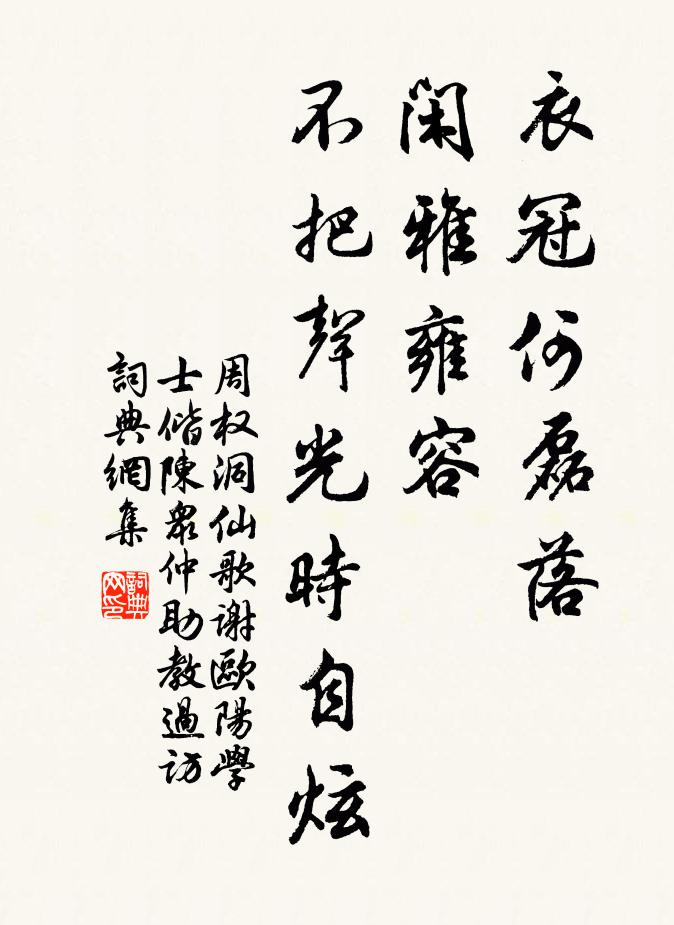 衣冠何磊落
閑雅雍容
不把聲光時自炫
周权洞仙歌謝歐陽學
士偕陳衆仲助教過访
詞典網集
詞典
网印